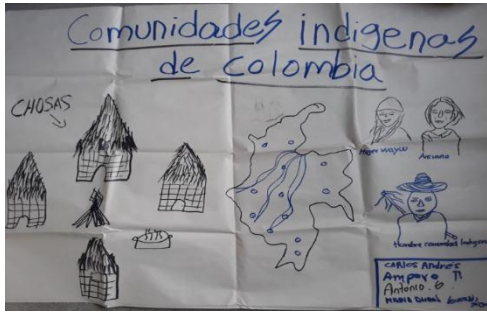 Comunidades indigenas
de colombia
CHOSAS
Mujer wayuu
Hombre comunidad Indigena
CARLOS Andrés
Amparo
Antonio. G.
MARIA